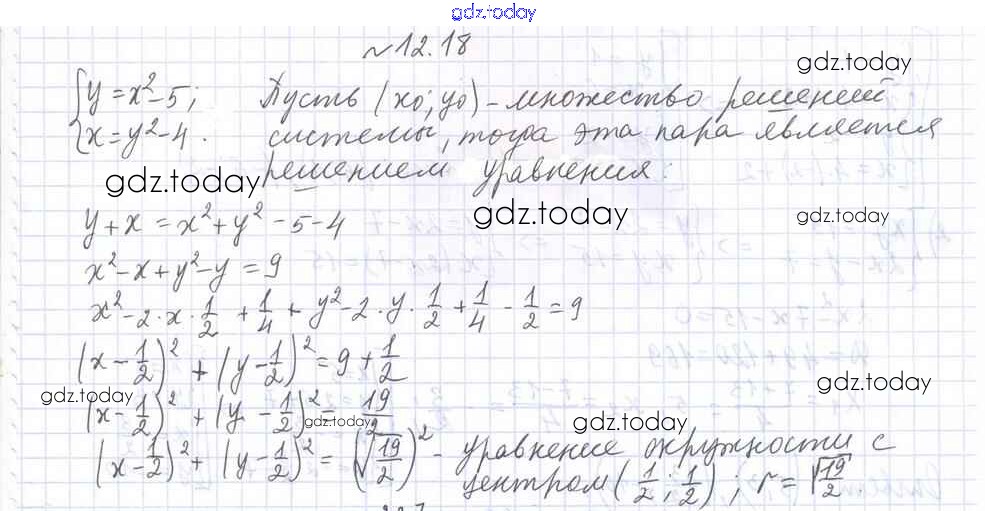 gdz.today
№12.18
gdz.today
{y = x² - 5; Пусть (x₀; y₀) - множество решений
{x = y² - 4. системы, тогда эта пара является
gdz.today решением уравнения:
y + x = x² + y² - 5 - 4
gdz.today gdz.today
x² - x + y² - y = 9
x² - 2 · x · 1/2 + 1/4 + y² - 2 · y · 1/2 + 1/4 - 1/2 = 9
(x - 1/2)² + (y - 1/2)² = 9 + 1/2
gdz.today gdz.today
(x - 1/2)² + (y - 1/2)² = 19/2
gdz.today gdz.today
(x - 1/2)² + (y - 1/2)² = (√19/2)² - уравнение окружности с
центром (1/2; 1/2); r = √19/2.